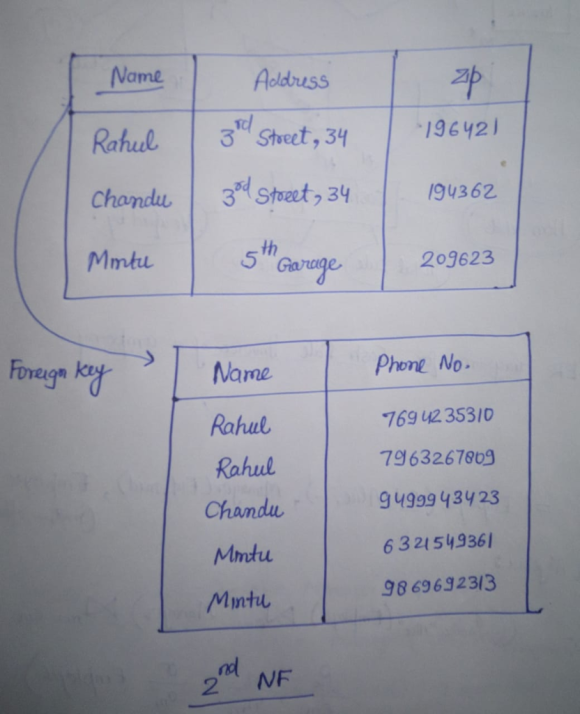 Name Address Zip
Rahul 3rd Street, 34 196421
Chandu 3rd Street, 34 194362
Mmtu 5th Garage 209623
Foreign key
Name Phone No.
Rahul 7694235310
Rahul 7963267809
Chandu 9499943423
Mmtu 6321549361
Mmtu 9869692313
2nd NF